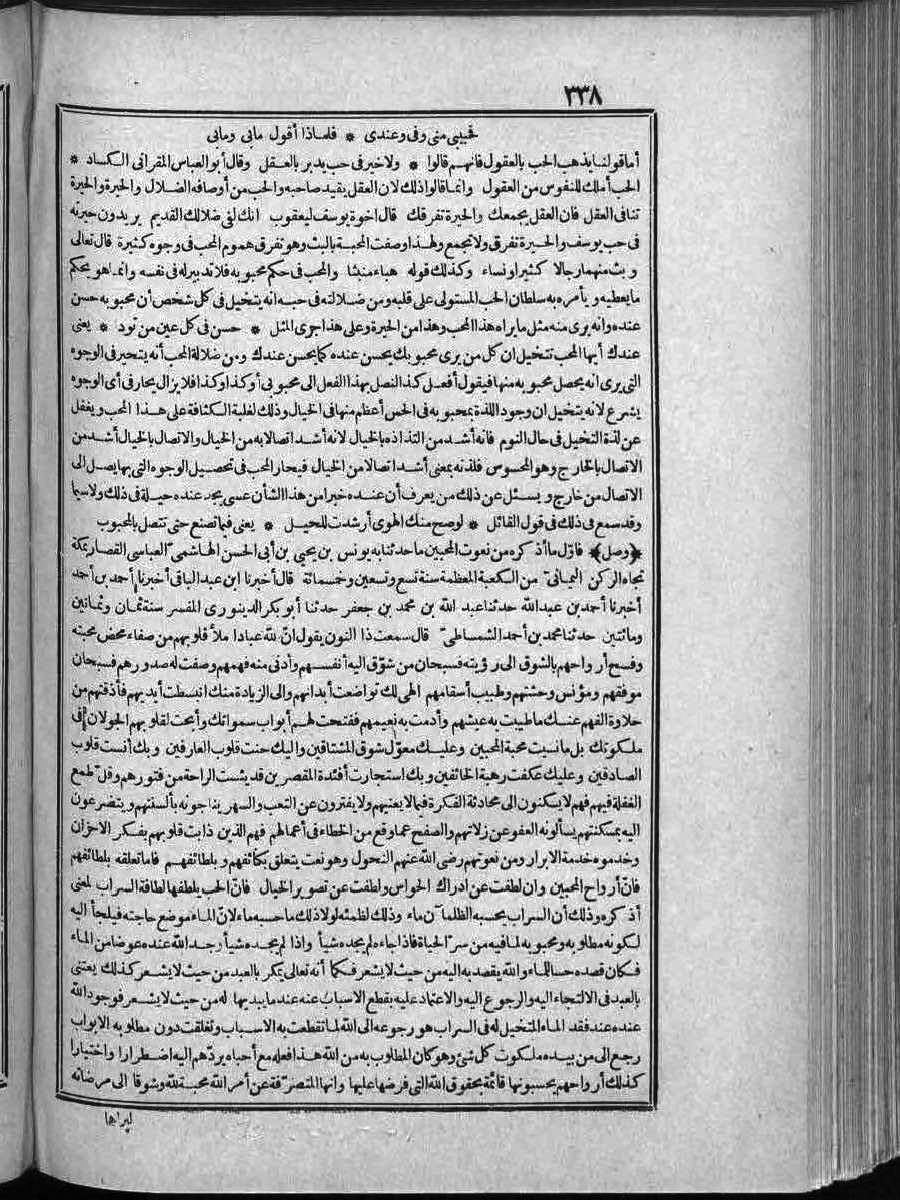 ٣٣٨
فحبيبي مني وفي وعندي * فلماذا أقول مابي ومابي
أما قولنا يذهب الحب بالعقول فانهم قالوا * ولا خير في حب يدبر بالعقل وقال أبو العباس المقراني الكساد *
الحب أملك للنفوس من العقول وانما قالوا ذلك لان العقل يقيد صاحبه والحب من أوصافه الضلال والحيرة والحيرة
تنافي العقل فان العقل يجمعك والحيرة تفرقك قال اخوة يوسف ليعقوب انك لفي ضلالك القديم يريدون حيرته
في حب يوسف والحيرة تفرق ولا تجمع ولهذا وصفت المحبة بالبث وهو تفرق هموم المحب في وجوه كثيرة قال تعالى
وبث منهما رجالا كثيرا ونساء وكذلك قوله هباء منبثا والمحب في حكم محبوبه فلا تدبير له في نفسه وانما هو بحكم
ما يعطيه ويأمره به سلطان الحب المستولى على قلبه ومن ضلالته في حبه انه يتخيل في كل شخص أن محبوبه حسن
عنده وانه يرى منه مثل ما يراه هذا المحب وهذا من الحيرة وعلى هذا جرى المثل * حسن في كل عين من تود * يعني
عندك أيها المحب تتخيل ان كل من يرى محبوبك يحسن عنده كما يحسن عندك ومن ضلالة المحب أنه يتحير في الوجوه
التي يرى انه يحصل محبوبه منها فيقول أفعل كذا لنصل بهذا الفعل الى محبوبي أو كذا وكذا فلا يزال يحار في أي الوجوه
يشرع لانه يتخيل ان وجود اللذة بمحبوبه في الحس أعظم منها في الخيال وذلك لغلبة الكثافة على هذا المحب ويغفل
عن لذة التخيل في حال النوم فانه أشد من التذاذه بالخيال لانه أشد اتصالا به من الخيال والاتصال بالخيال أشد من
الاتصال بالخارج وهو المحسوس فلذته بمعنى أشد اتصالا من الخيال فيحار المحب في تحصيل الوجوه التي بها يصل الى
الاتصال من خارج ويسئل عن ذلك من يعرف أن عنده خبرا من هذا الشأن عسى يجد عنده حيلة في ذلك ولا سيما
وقد سمع في ذلك في قول القائل * لو صح منك الهوى أرشدت للحيل * يعني فيما تصنع حتى تتصل بالمحبوب
﴿وصل﴾ فأول ما أذكره من نعوت المحبين ما حدثنا به يونس بن يحيى بن أبي الحسن الهاشمي العباسي القصار بمكة
تجاه الركن اليماني من الكعبة المعظمة سنة تسع وتسعين وخمسمائة قال أخبرنا ابن عبد الباقي أخبرنا أحمد بن أحمد
أخبرنا أحمد بن عبد الله حدثنا عبد الله بن محمد بن جعفر حدثنا أبو بكر الدينوري المفسر سنة ثمان وثمانين
ومائتين حدثنا محمد بن أحمد الشمشاطي قال سمعت ذا النون يقول ان لله عبادا ملأ قلوبهم من صفاء محض محبته
وفسح أرواحهم بالشوق الى رؤيته فسبحان من شوق اليه أنفسهم وأدنى منه فهمهم وصفت له صدورهم فسبحان
موفقهم ومؤنس وحشتهم وطبيب أسقامهم الهي لك تواضعت أبدانهم والى الزيادة منك انبسطت أيديهم فأذقتهم من
حلاوة الفهم عنك ما طيبت به عيشهم وأدمت به نعيمهم ففتحت لهم أبواب سمواتك وأبحت لقلوبهم الجولان في
ملكوتك بل ما نسيت محبة المحبين وعليك معول شوق المشتاقين واليك حنت قلوب العارفين وبك أنست قلوب
الصادقين وعليك عكفت رهبة الخائفين وبك استجارت أفئدة المقصرين قد يئست الراحة من فتورهم وقل طمع
الغفلة فيهم فهم لا يسكنون الى محادثة الفكرة فيما لا يعنيهم ولا يفترون عن التعب والسهر يناجونه بألسنتهم ويتضرعون
اليه بمسكنتهم يسألونه العفو عن زلاتهم والصفح عما وقع من الخطاء في أعمالهم فهم الذين ذابت قلوبهم بفكر الاحزان
وخدموه خدمة الابرار ومن نعوتهم رضي الله عنهم النحول وهو نعت يتعلق بكثائفهم وبلطائفهم فاما تعلقه بلطائفهم
فان أرواح المحبين وان لطفت عن ادراك الحواس ولطفت عن تصوير الخيال فان الحب يلطفها لطافة السراب لمعنى
أذكره وذلك أن السراب يحسبه الظمآن ماء وذلك لظمئه لولا ذلك ما حسبه ماء لان الماء موضع حاجته فيلجأ اليه
لكونه مطلوبه ومحبوبه لما فيه من سر الحياة فاذا جاءه لم يجده شيأ واذا لم يجده شيأ وجد الله عنده عوضا من الماء
فكان قصده حسا للماء والله يقصد به اليه من حيث لا يشعر فكما أنه تعالى يمكر بالعبد من حيث لا يشعر كذلك يعتني
بالعبد في الالتجاء اليه والرجوع اليه والاعتماد عليه بقطع الاسباب عنه عندما يبديها له من حيث لا يشعر فوجود الله
عنده عند فقد الماء المتخيل له في السراب هو رجوعه الى الله لما تقطعت به الاسباب وتغلقت دون مطلوبه الابواب
رجع الى من بيده ملكوت كل شئ وهو كان المطلوب به من الله هذا فعله مع أحبابه يردهم اليه اضطرارا واختيارا
كذلك أرواحهم يحسبونها قائمة بحقوق الله التي فرضها عليها وانها المتصرفة عن أمر الله محبة لله وشوقا الى مرضاته
ليراها